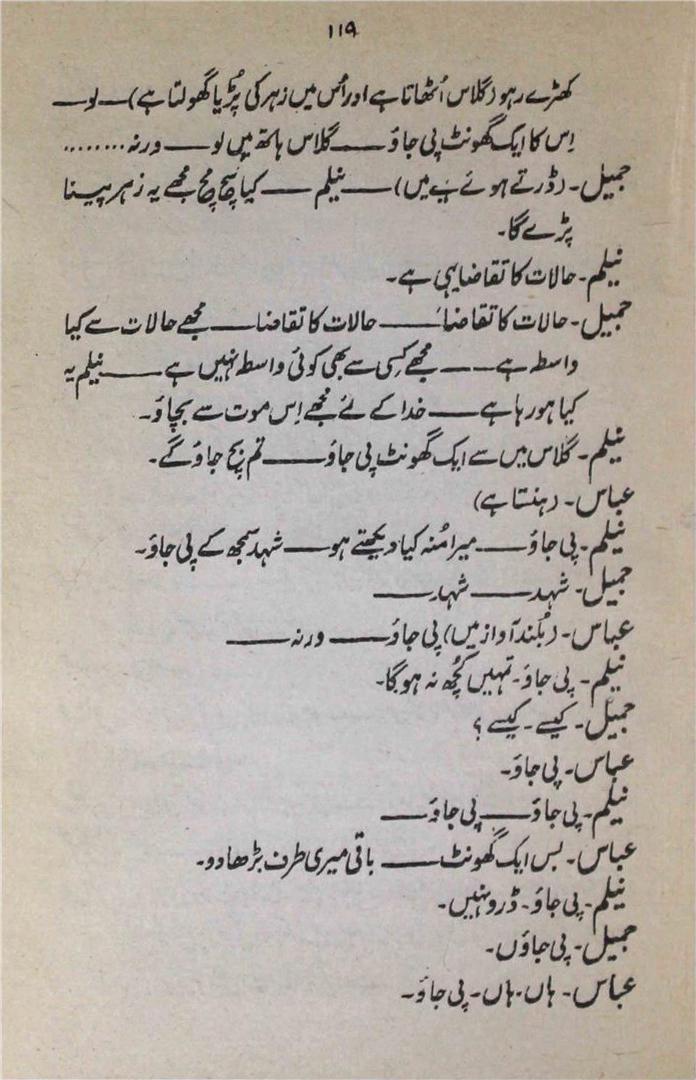 ۱۱۹
کھڑے رہو (گلاس اُٹھاتا ہے اور اُس میں زہر کی پُڑیا گھولتا ہے) — لو —
اِس کا ایک گھونٹ پی جاؤ —— گلاس ہاتھ میں لو —— ورنہ ........
جمیل۔ (ڈرتے ہوئے لہجے میں) —— نیلم —— کیا سچ مچ مجھے یہ زہر پینا
پڑے گا۔
نیلم۔ حالات کا تقاضا یہی ہے۔
جمیل۔ حالات کا تقاضا —— حالات کا تقاضا —— مجھے حالات سے کیا
واسطہ ہے —— مجھے کسی سے بھی کوئی واسطہ نہیں ہے —— نیلم یہ
کیا ہو رہا ہے —— خدا کے لئے مجھے اِس موت سے بچاؤ۔
نیلم۔ گلاس میں سے ایک گھونٹ پی جاؤ —— تم بچ جاؤ گے۔
عباس۔ (ہنستا ہے)
نیلم۔ پی جاؤ —— میرا مُنہ کیا دیکھتے ہو —— شہد سمجھ کے پی جاؤ۔
جمیل۔ شہد —— شہد ——
عباس۔ (بُلند آواز میں) پی جاؤ —— ورنہ ——
نیلم۔ پی جاؤ۔ تمہیں کُچھ نہ ہو گا۔
جمیل۔ کیسے۔ کیسے ؟
عباس۔ پی جاؤ۔
نیلم۔ پی جاؤ —— پی جاؤ ——
عباس۔ بس ایک گھونٹ —— باقی میری طرف بڑھا دو۔
نیلم۔ پی جاؤ۔ ڈرو نہیں۔
جمیل۔ پی جاؤں۔
عباس۔ ہاں۔ ہاں۔ پی جاؤ۔